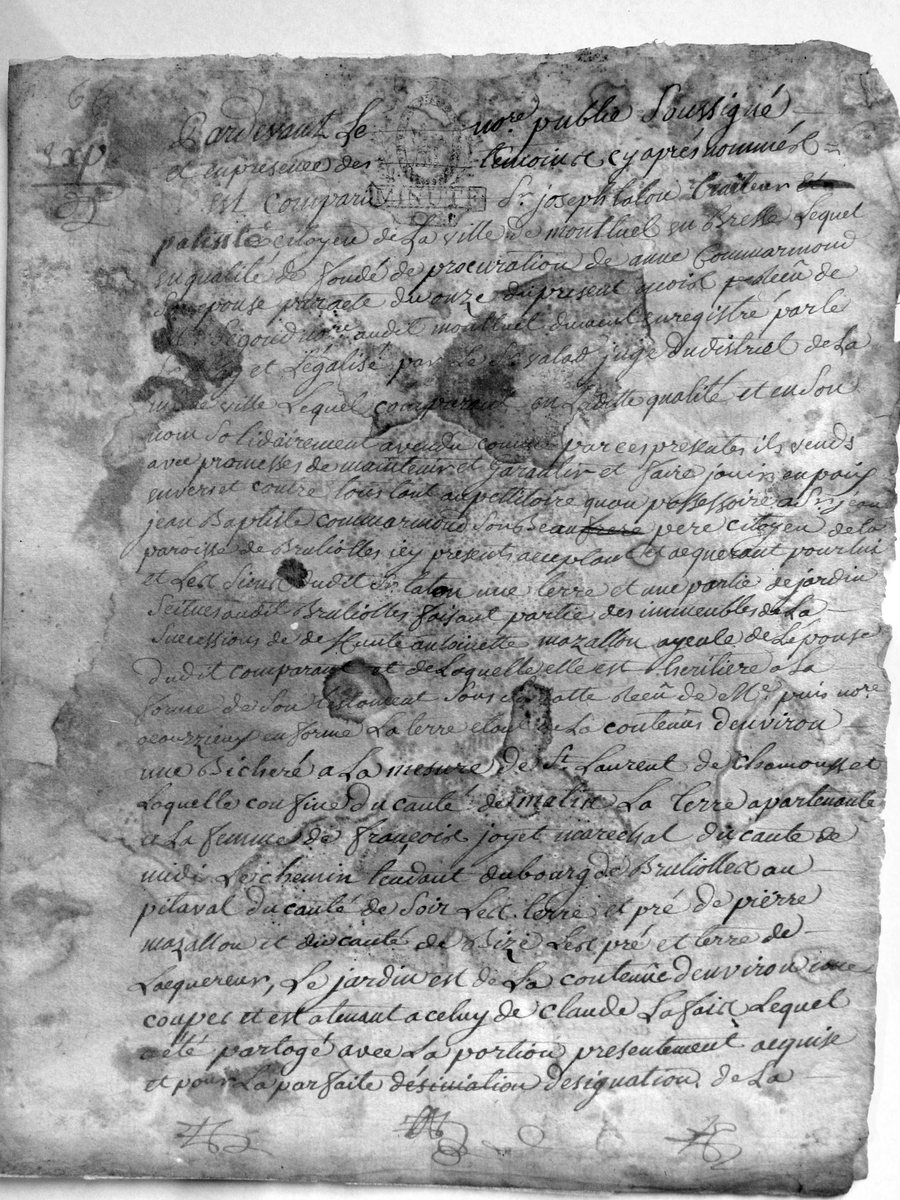 66
Exp
Pardevant Le nore public Soussigné
et en presence des temoins cy après nommés
MINUTE
est comparu Sr joseph laton traiteur
patenté citoyen de La ville de montluel en Bresse Lequel
en qualité de fondé de procuration de anne Commarmond
Son epouse par acte du onze du present mois Receû de
Segond nore audit montluel duement enregistré par le
et Légalisé par Le Sr valad juge du district de La
ville Lequel comparant en Laditte qualité et en Son
nom Solidairement a vendu comme par ces presentes il vends
avec promesses de maintenir et garantir et faire jouir en paix
envers et contre tous tant au petitoire quau possessoire a Sr
jean Baptiste commarmond Son Beau pere citoyen de la
paroisse de Brullioles icy present acceptant et aquerant pour lui
et Les Siens dudit Sr laton une terre et une partie de jardin
Scitues audit Brullioles faisant partie des immeubles de La
Successions de de Hunte antoinette mazallon ayeule de Lépouse
dudit comparant et de Laquelle elle est heritiere a La
forme de Son testament Sous Sa datte Receû de Me puis nore
en forme La terre est de La contenus denviron
une Bicheré a La mesure de St Laurent de chamousset
Laquelle confine du cauté de matin La terre apartenante
a La femme de françois joyet marechal du cauté de
midi Le chemin tendant du bourg de Brullioles au
pitaval du cauté de Soir Les terre et pré de pierre
mazallon et du cauté de Bize Les pré et terre de
Laequereur, Le jardin est de La contenûe denviron une
coupes et est atenant a celuy de claude Lafais Lequel
a été partagé avec La portion presentement acquise
et pour La parfaite désiniation designation de La